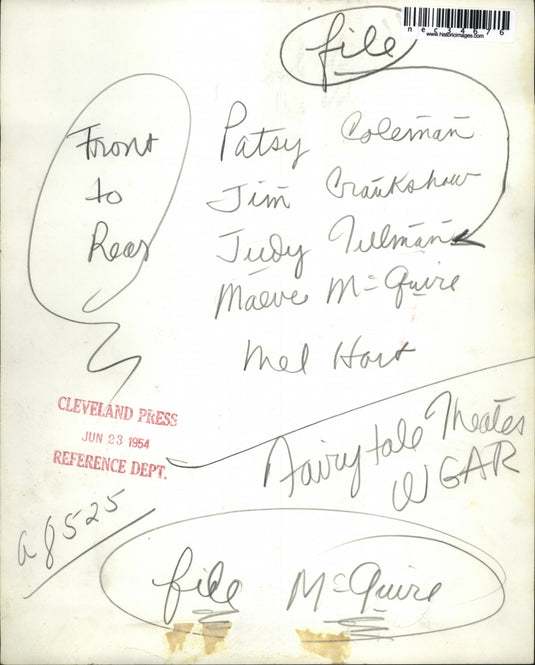 file
nec34676
www.historicimages.com
Front
to
Rear
Patsy Coleman
Jim Crankshaw
Judy Tillman
Maeve McGuire
Mel Hart
CLEVELAND PRESS
JUN 23 1954
REFERENCE DEPT.
Fairytale Theater
WGAR
a8525
file McGuire